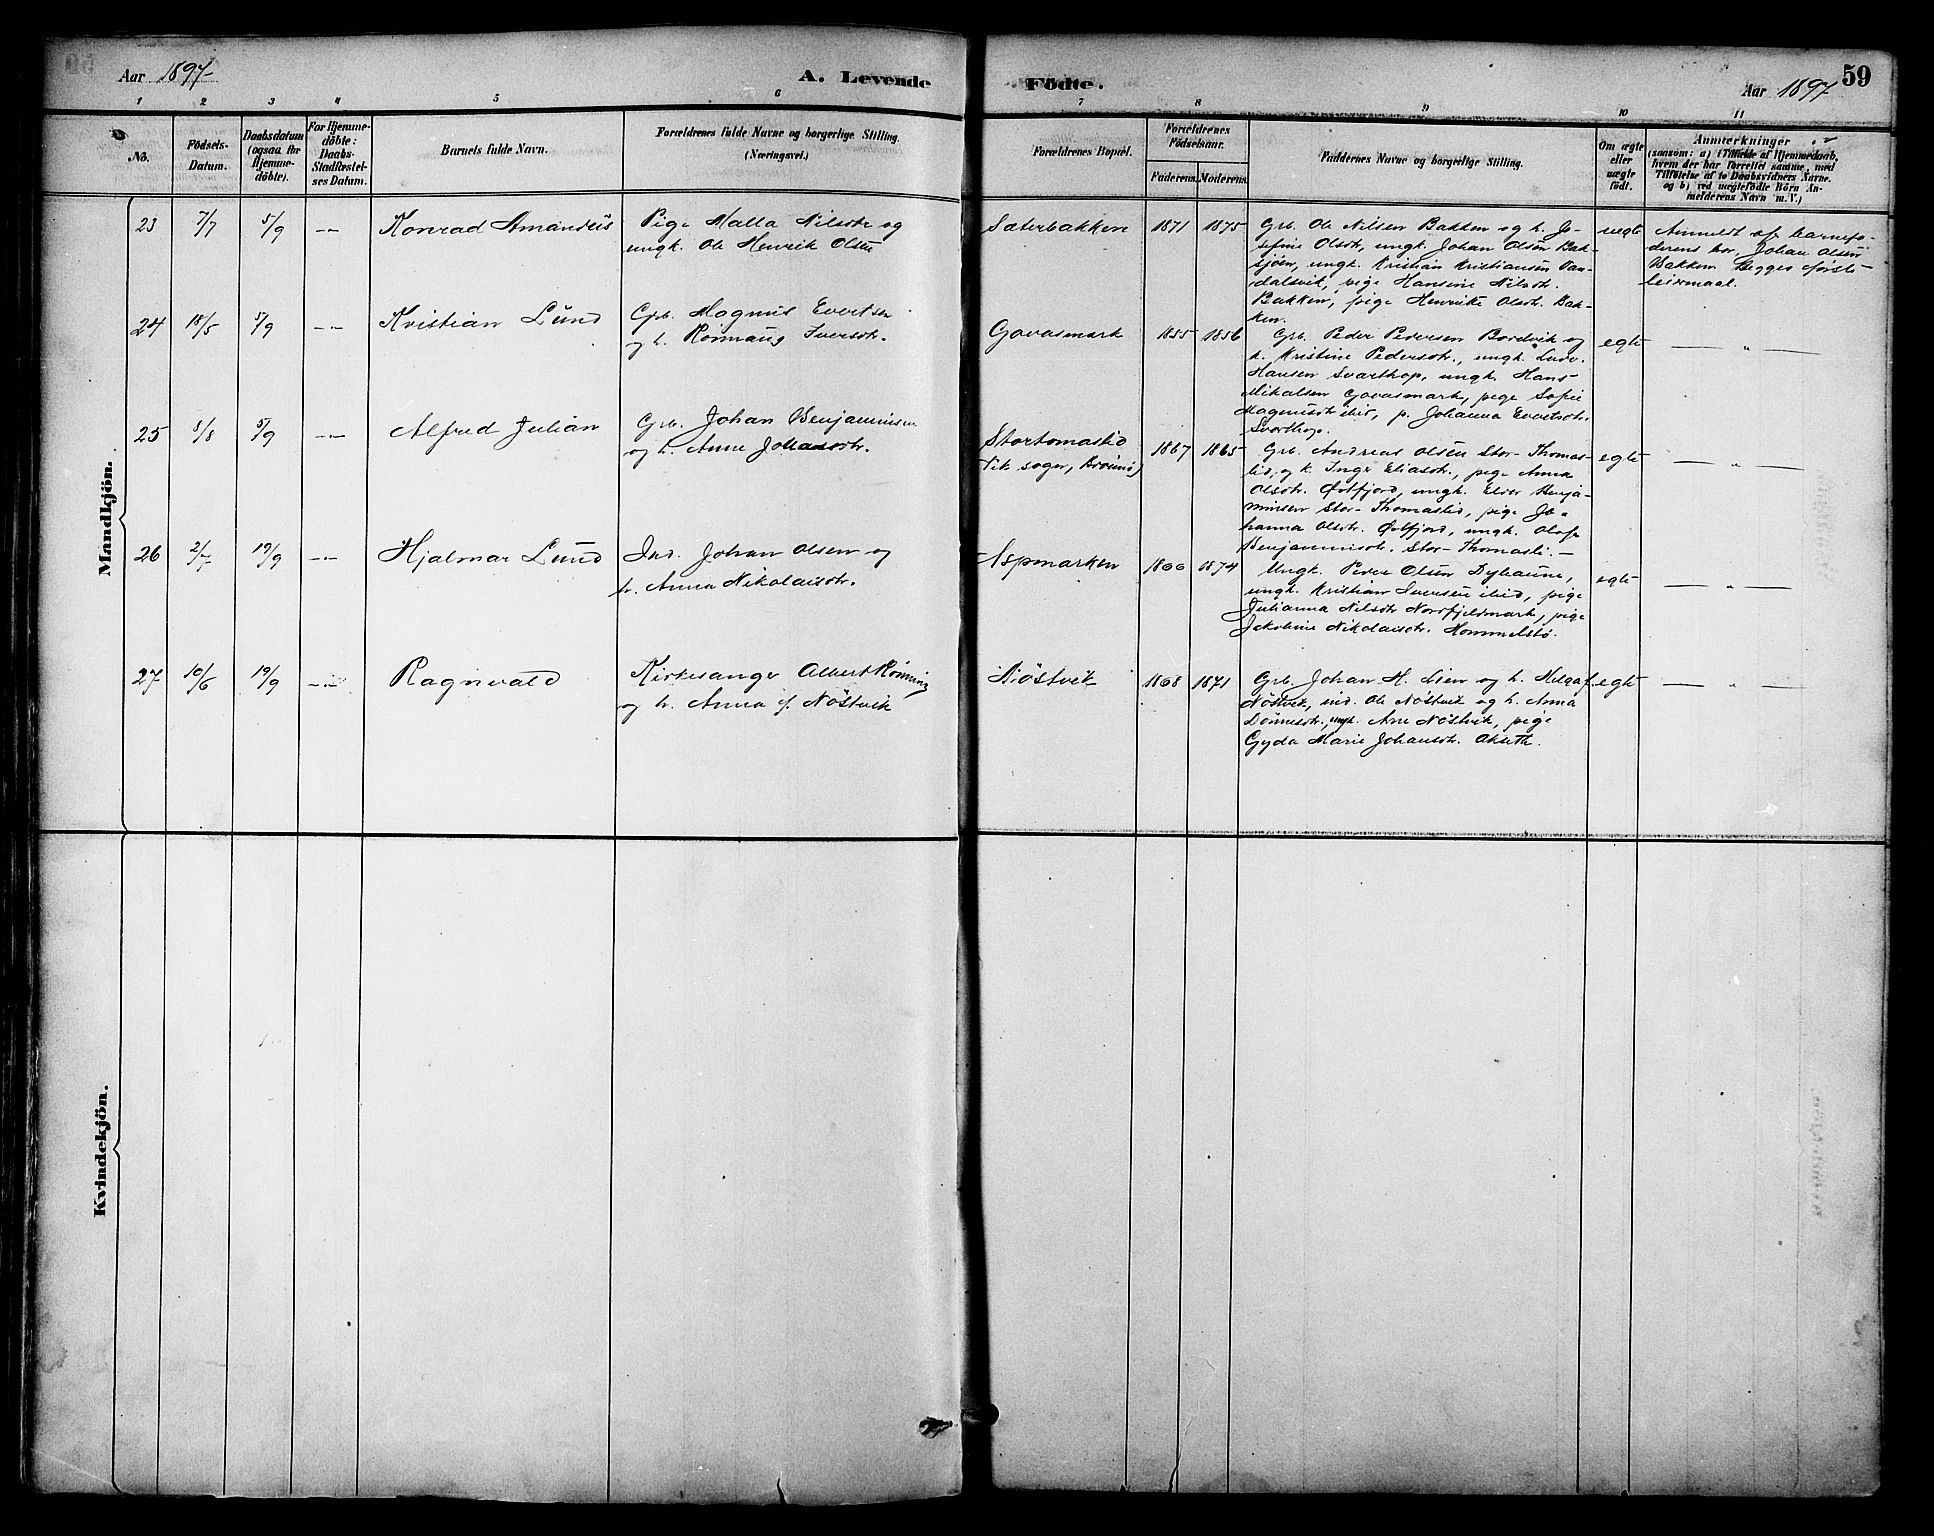 Aar 1897
A. Levende
Födte.
Aar 1897
59
1 2 3 4 5 6 7 8 9 10 11
No.
Födsels-
Datum.
Daabsdatum
(ogsaa for
Hjemme-
döbte).
For Hjemme-
döbte:
Daabs-
Stadfæstel-
ses Datum.
Barnets fulde Navn.
Forældrenes fulde Navne og borgerlige Stilling.
(Næringsvei.)
Forældrenes Bopæl.
Forældrenes
Födselsaar.
Faderens. Moderens.
Faddernes Navne og borgerlige Stilling.
Om ægte
eller
uægte
födt.
Anmerkninger
(saasom: a) i Tilfælde af Hjemmedaab,
hvem der har forrettet samme, med
Tilföielse af to Daabsvidners Navne,
og b) ved uægtefödte Börn An-
melderens Navn m. V.)
Mandkjön.
23 7/7 5/9 -"- Konrad Amandus
Pige Malla Nilsdtr og
ungk. Ole Henrik Olsen
Sæterbakken 1871 1875
Grb. Ole Nilsen Bakken og h. Jo-
sefine Olsdtr, ungk. Johan Olsen Bak-
sjøen, ungk. Kristian Kristiansen Van-
dalsvik, pige Hansine Nilsdtr.
Bakken, pige Henrikke Olsdtr. Bak-
ken.
uegte
Anmeldt af barnefa-
derens bor, Johan Olsen
Bakken. Begges første
leiermaal.
24 18/5 5/9 -"- Kristian Lund
Grb. Magnus Evertsen
og h. Rønnaug Iversdtr.
Govasmark 1855 1856
Grb. Peder Pedersen Bordvik og
h. Kristine Pedersdtr., ungk. Ludv.
Hansen Svarthop, ungk. Hans
Mikalsen Govasmark, pige Sofie
Magnusdtr ibid, p. Johanna Evertsdtr.
Svarthop.
egte — " —
25 8/8 5/9 -"- Alfred Julian
Grb. Johan Benjaminsen
og h. Anne Johansdtr.
Stortomaslid
Vik sogn, Brønnø) 1867 1865
Grb. Andreas Olsen Stor-Thomas-
lid, og h. Inger Eliasdtr., pige Anna
Olsdtr. Østfjord, ungk. Elder Benja-
minsen Stor-Thomaslid, pige Jo-
hanna Olsdtr. Østfjord, ungk. Olofe
Benjaminsdtr. Stor-Thomasli. —
egte — " —
26 2/7 19/9 -"- Hjalmar Lund
Ind. Johan Olsen og
h. Anna Nikolaisdtr.
Aspmarken 1866 1874
Ungk. Peder Olsen Dyhaune,
ungk. Kristian Iversen ibid, pige
Julianna Nilsdtr Nordfjeldmark, pige
Jakobine Nikolaisdtr. Hommelstø.
egte — " —
27 10/6 19/9 -"- Ragnvald
Kirkesanger Albert Rønning
og h. Anna f. Nøstvik
Nøstvik 1868 1871
Grb. Johan H. Lien og h. Helga f.
Nøstvik, ind. Ole Nøstvik og h. Anna
Dønnesdtr., ungk. Arne Nøstvik, pige
Gyda Marie Johansdtr. Akseth.
egte — " —
Kvindekjön.